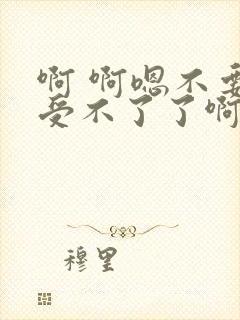 啊 啊嗯不要
受不了了啊
穆里